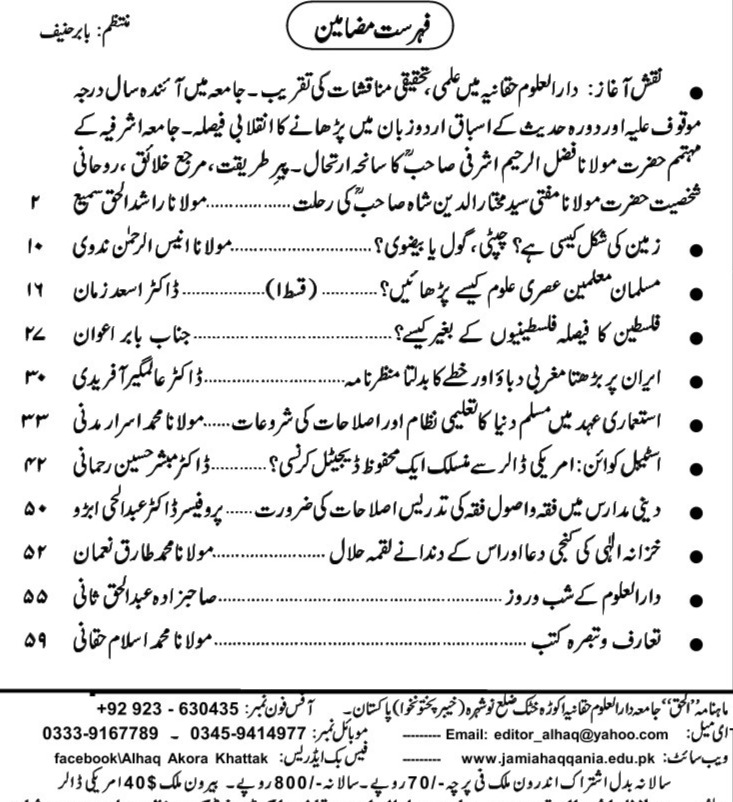 فہرست مضامین
منتظم: بابر حنیف
● نقش آغاز: دارالعلوم حقانیہ میں علمی، تحقیقی مناقشات کی تقریب۔ جامعہ میں آئندہ سال درجہ
موقوف علیہ اور دورہ حدیث کے اسباق اردو زبان میں پڑھانے کا انقلابی فیصلہ۔ جامعہ اشرفیہ کے
مہتمم حضرت مولانا فضل الرحیم اشرفی صاحبؒ کا سانحہ ارتحال۔ پیر طریقت، مرجع خلائق، روحانی
شخصیت حضرت مولانا مفتی سید مختار الدین شاہ صاحبؒ کی رحلت ................ مولانا راشد الحق سمیع ۲
● زمین کی شکل کیسی ہے؟ چپٹی، گول یا بیضوی؟ ........................ مولانا انیس الرحمٰن ندوی ۱۰
● مسلمان معلمین عصری علوم کیسے پڑھائیں؟ ........... (قسط ۱) ................ ڈاکٹر اسعد زمان ۱۶
● فلسطین کا فیصلہ فلسطینیوں کے بغیر کیسے؟ ........................ جناب بابر اعوان ۲۷
● ایران پر بڑھتا مغربی دباؤ اور خطے کا بدلتا منظرنامہ ........................ ڈاکٹر عالمگیر آفریدی ۳۰
● استعماری عہد میں مسلم دنیا کا تعلیمی نظام اور اصلاحات کی شروعات ...... مولانا محمد اسرار مدنی ۳۳
● اسٹیبل کوائن: امریکی ڈالر سے منسلک ایک محفوظ ڈیجیٹل کرنسی؟ ........... ڈاکٹر مبشر حسین رحمانی ۴۲
● دینی مدارس میں فقہ و اصول فقہ کی تدریس اصلاحات کی ضرورت ...... پروفیسر ڈاکٹر عبدالحی ابڑو ۵۰
● خزانہ الٰہی کی کنجی دعا اور اس کے دندانے لقمہ حلال .................... مولانا محمد طارق نعمان ۵۲
● دارالعلوم کے شب و روز ........................ صاحبزادہ عبدالحق ثانی ۵۵
● تعارف و تبصرہ کتب ........................ مولانا محمد اسلام حقانی ۵۹
ماہنامہ ’’الحق‘‘ جامعہ دارالعلوم حقانیہ اکوڑہ خٹک ضلع نوشہرہ (خیبر پختونخوا) پاکستان۔ آفس فون نمبر: +92 923 - 630435
ای میل: Email: editor_alhaq@yahoo.com --------- موبائل نمبر: 0345-9414977 ۔ 0333-9167789
ویب سائٹ: www.jamiahaqqania.edu.pk --------- فیس بک ایڈریس: facebook\Alhaq Akora Khattak
سالانہ بدل اشتراک اندرون ملک فی پرچہ -/70 روپے۔ سالانہ -/800 روپے۔ بیرون ملک $40 امریکی ڈالر